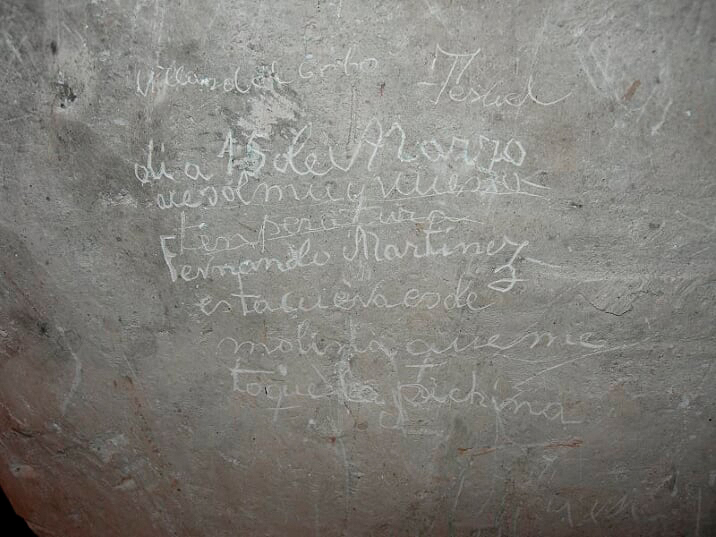 Villasdel Corbo Teruel
dia 15 de Marzo
temperatura
Fernando Martinez
estacuevaesde
molina queme
toque la pichina